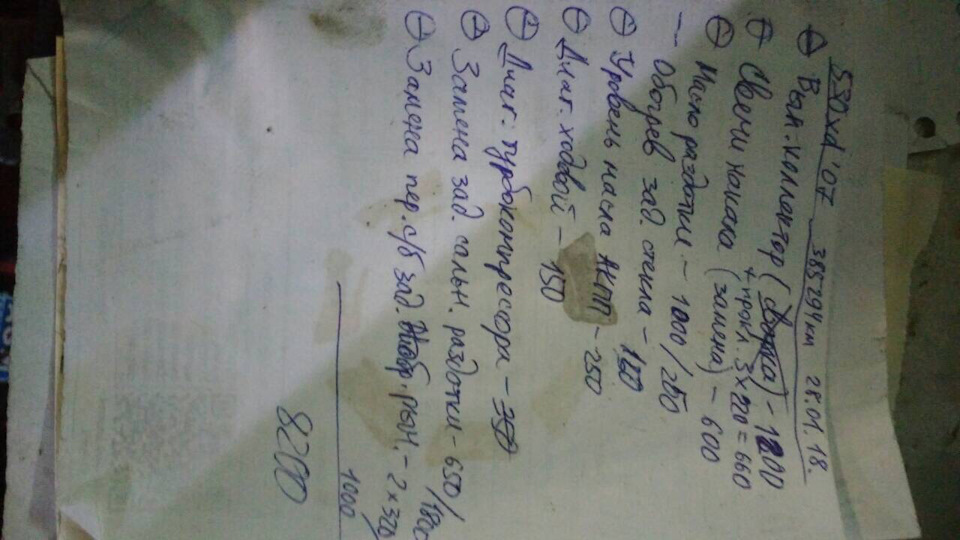 530xd '07 385 694 км 28.01.18.
Вып. коллектор (Сварка) - 1200
+ прокл. 3 x 220 = 660
Свечи накала (замена) - 600
Масло раздатки - 1000/250
Обогрев зад. стекла - 100
Уровень масла АКПП - 250
Диаг. ходовой - 150
Диаг. турбокомпрессора - 350
Замена зад. сальн. раздатки - 650/1800
Замена пер. с/б зад. рыч. - 2 x 320/
1000
8200